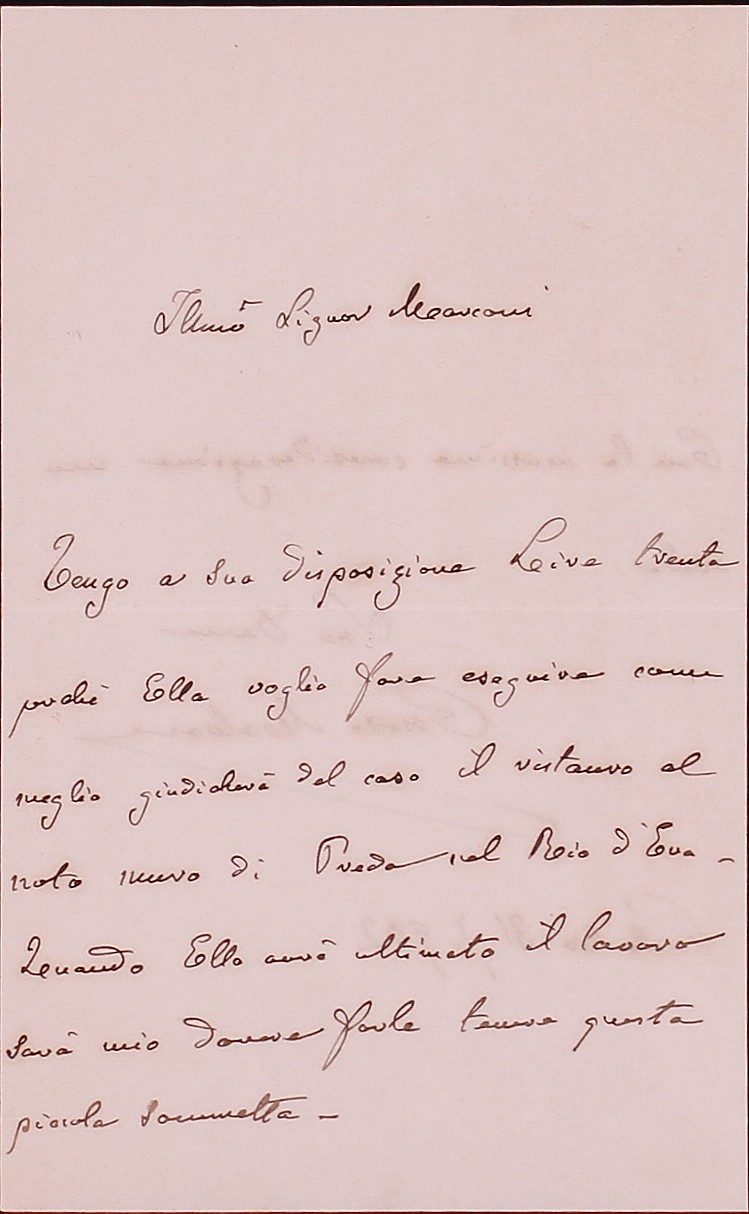 Illmo Signor Marconi
Tengo a sua disposizione Leire trenta
perchè Ella voglia fare eseguire come
meglio giudicherà del caso il ristauro al
noto muro di Preda nel Rio d'Eva -
Quando Ella avrà ultimato il lavoro
sarà mio dovere farle tenere questa
piccola sommetta -